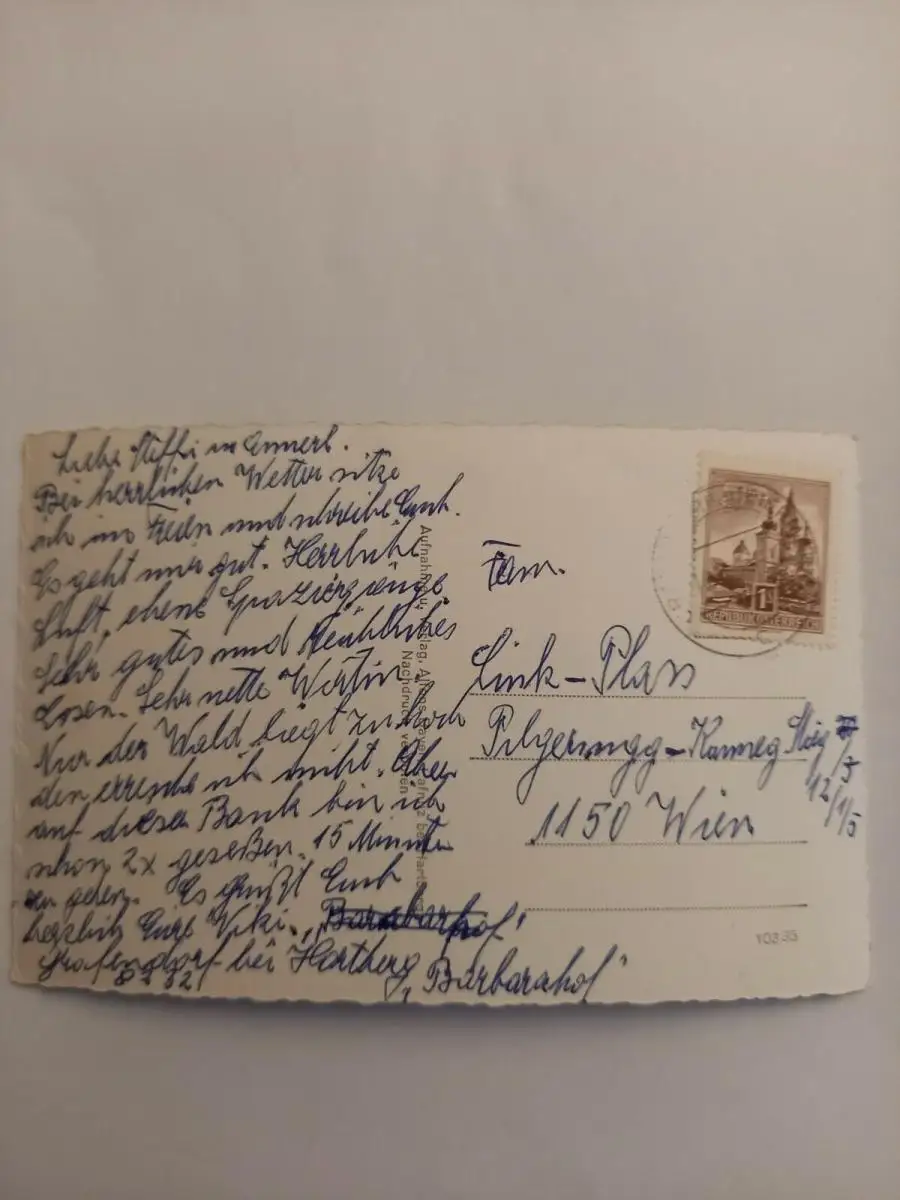 Liebe Steffi u Ennerl.
Bei herrlichen Wetter sitze
ich im Freien und schreibe Euch.
Es geht mir gut. Herrliche
Luft, ebene Spaziergänge.
Sehr gutes und reichliches
Essen. Sehr nette Wirtin
Nur der Wald liegt zu hoch
den erreiche ich nicht. Aber
auf dieser Bank bin ich
schon 2x geseßen. 15 Minuten
zu gehen. Es grüßt Euch
herzlich Eure Viki. „Barabarhof"
Grafendorf bei Hartberg „Barbarahof"
8232
Aufnahme u. Verlag, Nachdruck verboten
Fam.
Link-Plan
1150 Wien
12/1/5
REPUBLIK ÖSTERREICH
1